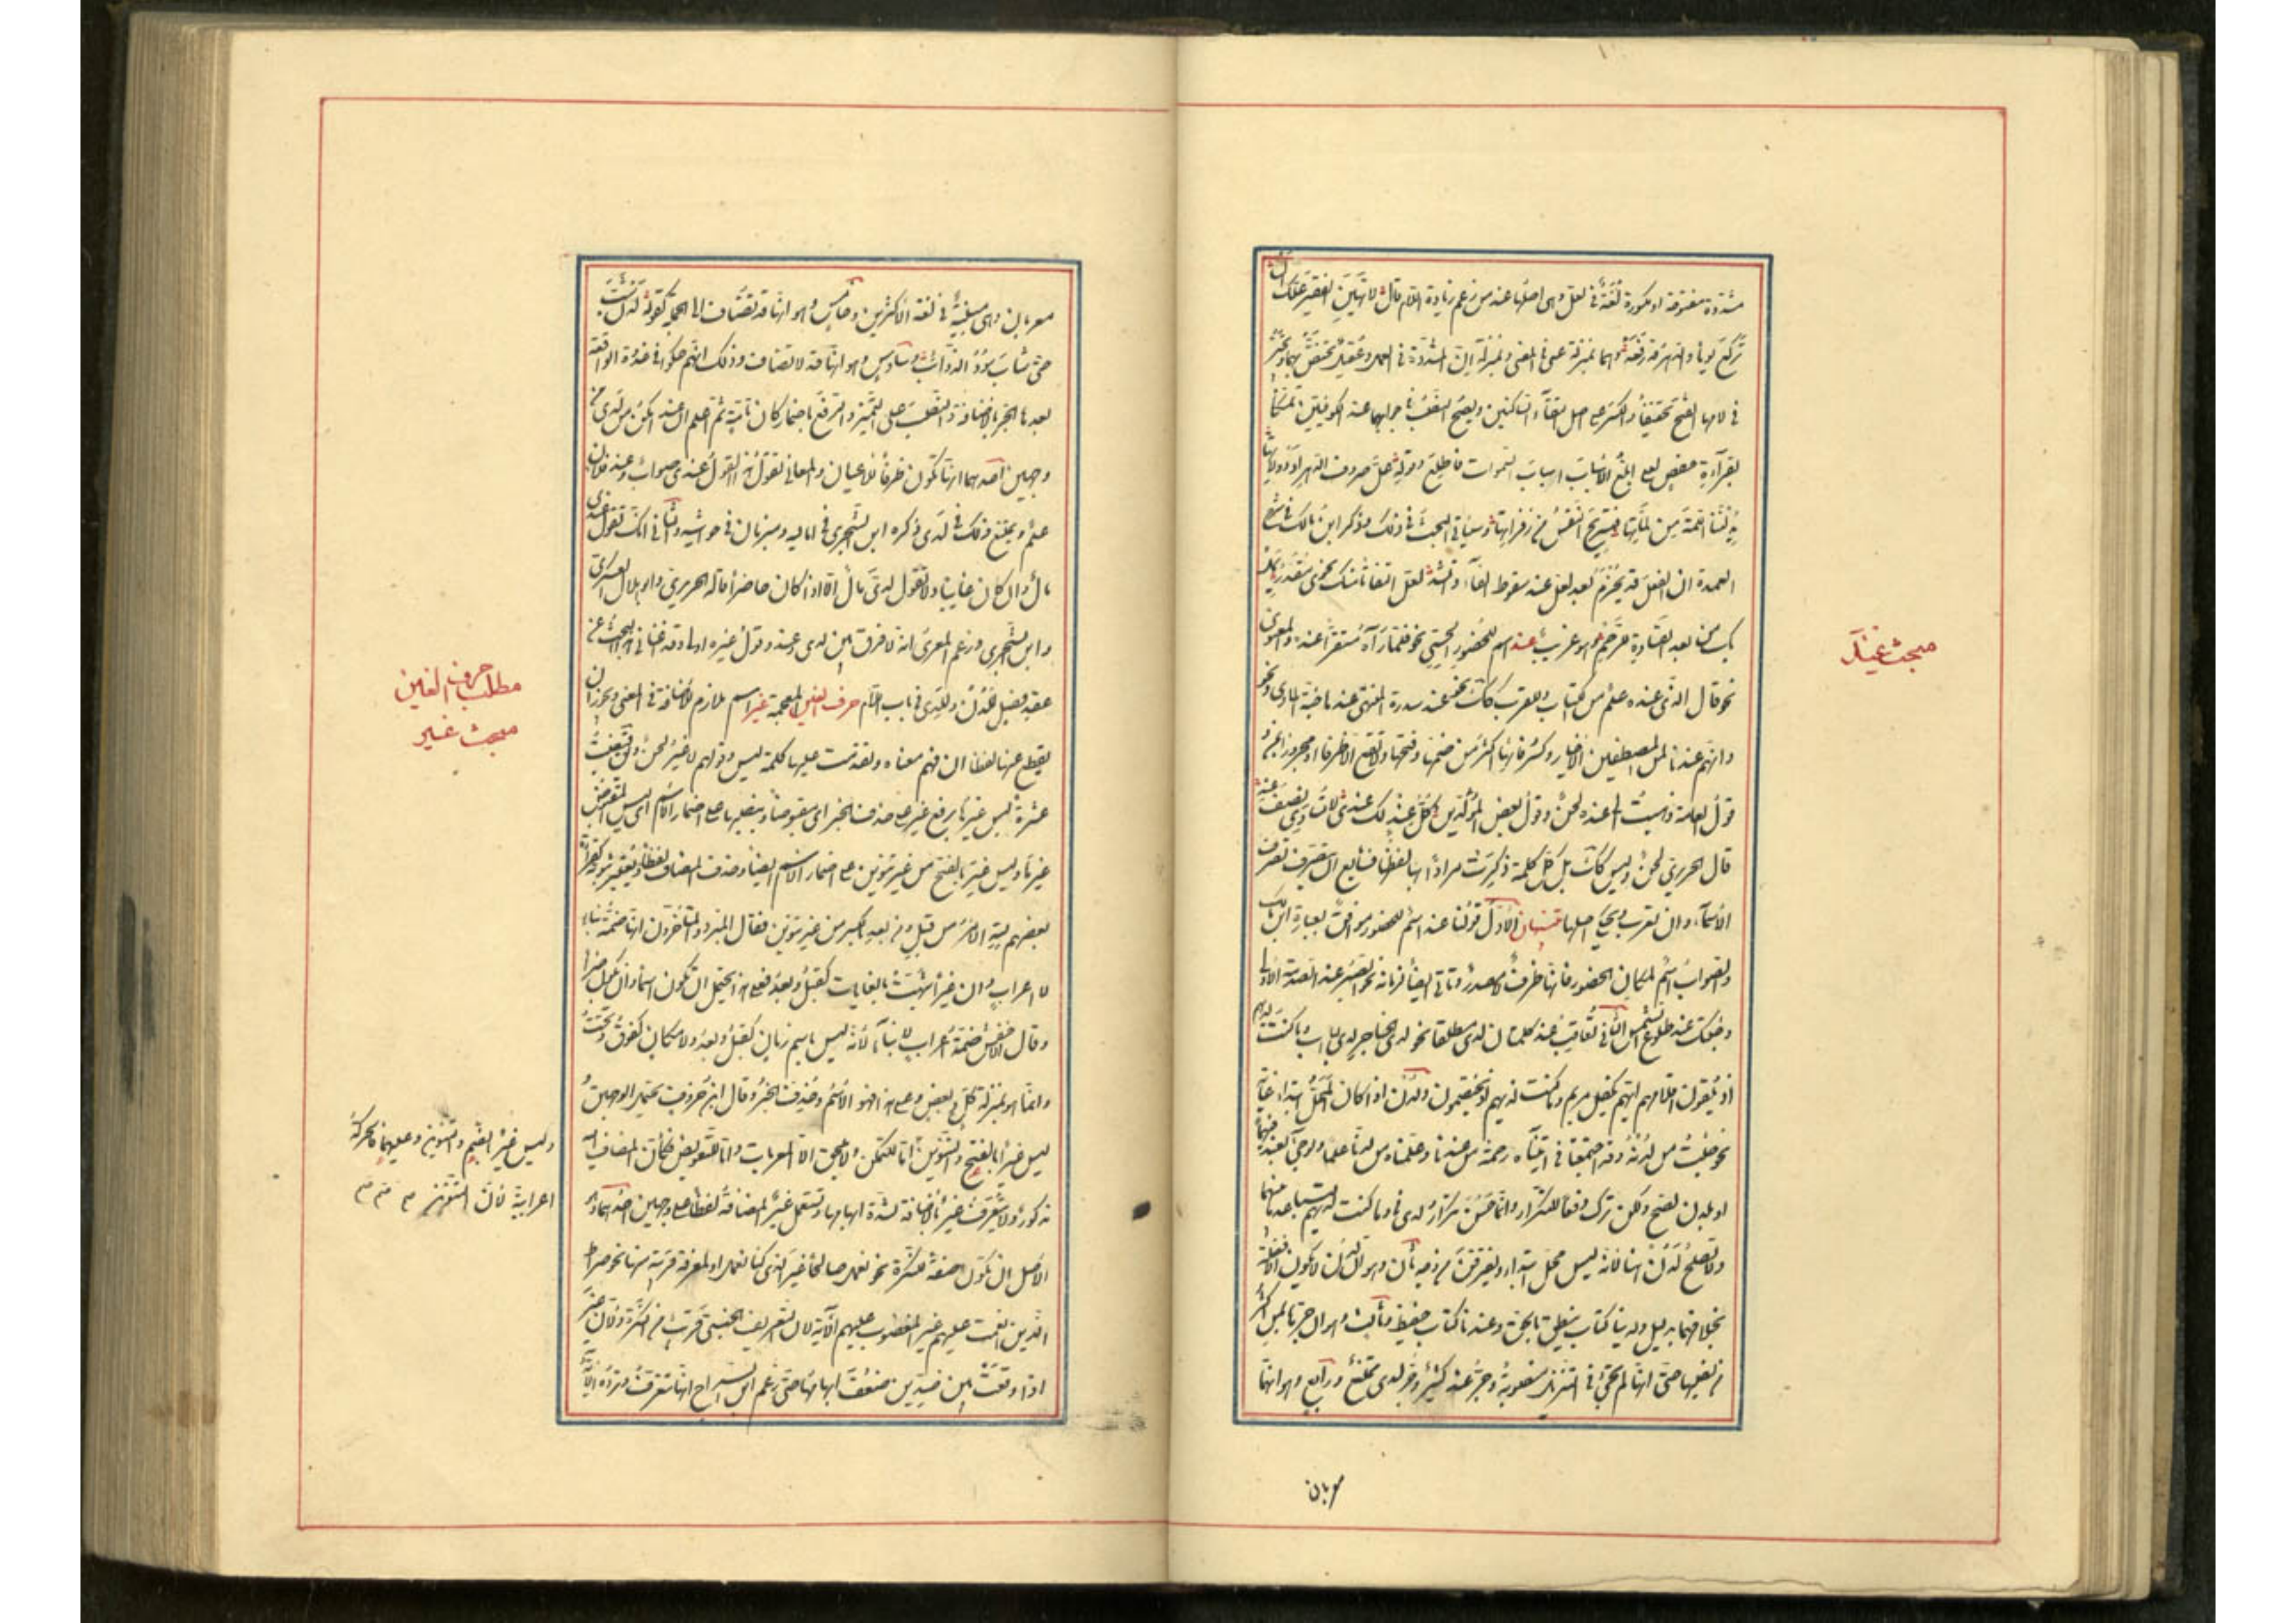 مشددة مفتوحة او مكسورة لغة في لعل وهى اصلها عند من زعم زيادة اللام قال لا تهين الفقير علك ان
تركع يوما والدهر قد رفعه وهما بمنزلة عسى في المعنى وبمنزلة ان المشددة في العمل وعقيل تخفض بهما وتجيز
في لامهما الفتح تخفيفا والكسر على اصل التقاء الساكنين ويصح النصب في جوابهما عند الكوفيين تمسكا
بقراءة حفص لعلى ابلغ الاسباب اسباب السموات فاطلع وقوله عل صروف الدهر او دولاتها
يدلننا اللمة من لماتها فتستريح النفس من زفراتها وسياتى البحث في ذلك وذكر ابن مالك في شرح
العمدة ان الفعل قد يجزم بعد لعل عند سقوط الفاء وانشد لعل التفاتا منك نحوى مقدر يمل
بك من بعد القساوة للرحم وهو غريب عند اسم للحضور الحسى نحو فلما رآه مستقرا عنده والمعنوى
نحو قال الذى عنده علم من الكتاب وللقرب كذلك نحو عند سدرة المنتهى عندها جنة الماوى ونحو
وانهم عندنا لمن المصطفين الاخيار وكسر فائها اكثر من ضمها وفتحها ولا تقع الا ظرفا او مجرورة بمن
قول العامة ذهبت الى عنده لحن وقول بعض المولدين كل عند لك عندى لا يساوى نصف عند
قال الحريرى لحن وليس كذلك بل كل كلمة ذكرت مرادا بها لفظها فسائغ ان تتصرف تصرف
الاسماء وان تعرب ويحكى اصلها تنبيهان الاول قولنا عند اسم للحضور موافق لعبارة ابن مالك
والصواب اسم لمكان الحضور فانها ظرف لا مصدر وتاتى ايضا لزمانه نحو الصبر عند الصدمة الاولى
وجئتك عند طلوع الشمس الثانى تعاقب عند كلمتان لدى مطلقا نحو لدى الحناجر لدى الباب وما كنت لديهم
اذ يلقون اقلامهم ايهم يكفل مريم وما كنت لديهم اذ يختصمون ولدن اذا كان المحل ابتداء غاية
نحو جئت من لدنه وقد اجتمعتا في آتيناه رحمة من عندنا وعلمناه من لدنا علما ولو جىء بعند فيهما
او بلدن لصح ولكن ترك دفعا للتكرار وانما حسن تكرار لدى في وما كنت لديهم لتباعد ما بينهما
ولا تصلح لدن هنا لانه ليس محل ابتداء ويفترقن من وجه ثان وهو ان لدن لا تكون الا فضلة
بخلافهما بدليل ولدينا كتاب ينطق بالحق وعندنا كتاب حفيظ وثالث وهو ان جرها بمن اكثر
من نصبها حتى انها لم تجئ في التنزيل منصوبة وجر عند كثير وجر لدى ممتنع ورابع وهو انهما
معربان
مبحث عند
معربان وهى مبنية في لغة الاكثرين وخامس وهو انها قد تضاف الى الجملة كقوله لدن شب
حتى شاب سود الذوائب وسادس وهو انها قد لا تضاف وذلك انهم حكوا في غدوة الواقعة
بعدها الجر بالاضافة والنصب على التمييز والرفع باضمار كان تامة ثم اعلم ان عند امكن من لدى من
وجهين احدهما انها تكون ظرفا للاعيان والمعانى تقول هذا القول عندى صواب وعند فلان
علم ويمتنع ذلك في لدى ذكره ابن الشجرى في اماليه ومبرمان في حواشيه والثانى انك تقول عندى
مال وان كان غايبا ولا تقول لدى مال الا اذا كان حاضرا قاله الحريرى وابو هلال العسكرى
وابن الشجرى وزعم المعرى انه لا فرق بين لدى وعند وقول غيره اولى وقد اغنانى البحث عن
عقد فصل للدن وللدى في باب اللام حرف الغين المعجمة غير اسم ملازم للاضافة في المعنى ويجوز ان
يقطع عنها لفظا ان فهم معناه وتقدمت عليها كلمة ليس وقولهم لا غير لحن ويقال قبضت
عشرة ليس غيرها برفع غير على حذف الخبر اى مقبوضا وبنصبها على اضمار الاسم اى ليس المقبوض
غيرها وليس غير بالفتح من غير تنوين على اضمار الاسم ايضا وحذف المضاف اليه لفظا ونية ثبوته كقراءة
بعضهم لله الامر من قبل ومن بعد بالكسر من غير تنوين فقال المبرد والمتاخرون انها ضمة بناء
لا اعراب وان غير شبهت بالغايات كقبل وبعد فعلى هذا يحتمل ان تكون اسما وان تكون خبرا
وقال الاخفش ضمة اعراب لا بناء لانه ليس باسم زمان كقبل وبعد ولا مكان كفوق وتحت
وانما هو بمنزلة كل وبعض وعلى هذا فهو الاسم وحذف الخبر وقال ابن خروف يحتمل الوجهين و
ليس غيرا بالفتح والتنوين اما للتمكن ولا يلحق الا المعربات واما للتعويض فكأن المضاف اليه
مذكور ولا تتعرف غير بالاضافة لشدة ابهامها وتستعمل غير المضافة لفظا على وجهين احدهما وهو
الاصل ان تكون صفة للنكرة نحو نعمل صالحا غير الذى كنا نعمل او لمعرفة قريبة منها نحو صراط
الذين انعمت عليهم غير المغضوب عليهم الآية لان المعرف الجنسى قريب من النكرة ولان غير
اذا وقعت بين ضدين ضعف ابهامها حتى زعم ابن السراج انها تتعرف ويرده الآية
مطلب حرف الغين
مبحث غير
وليس غير بالضم والتنوين وعليهما فالحركة
اعرابية لان التنوين